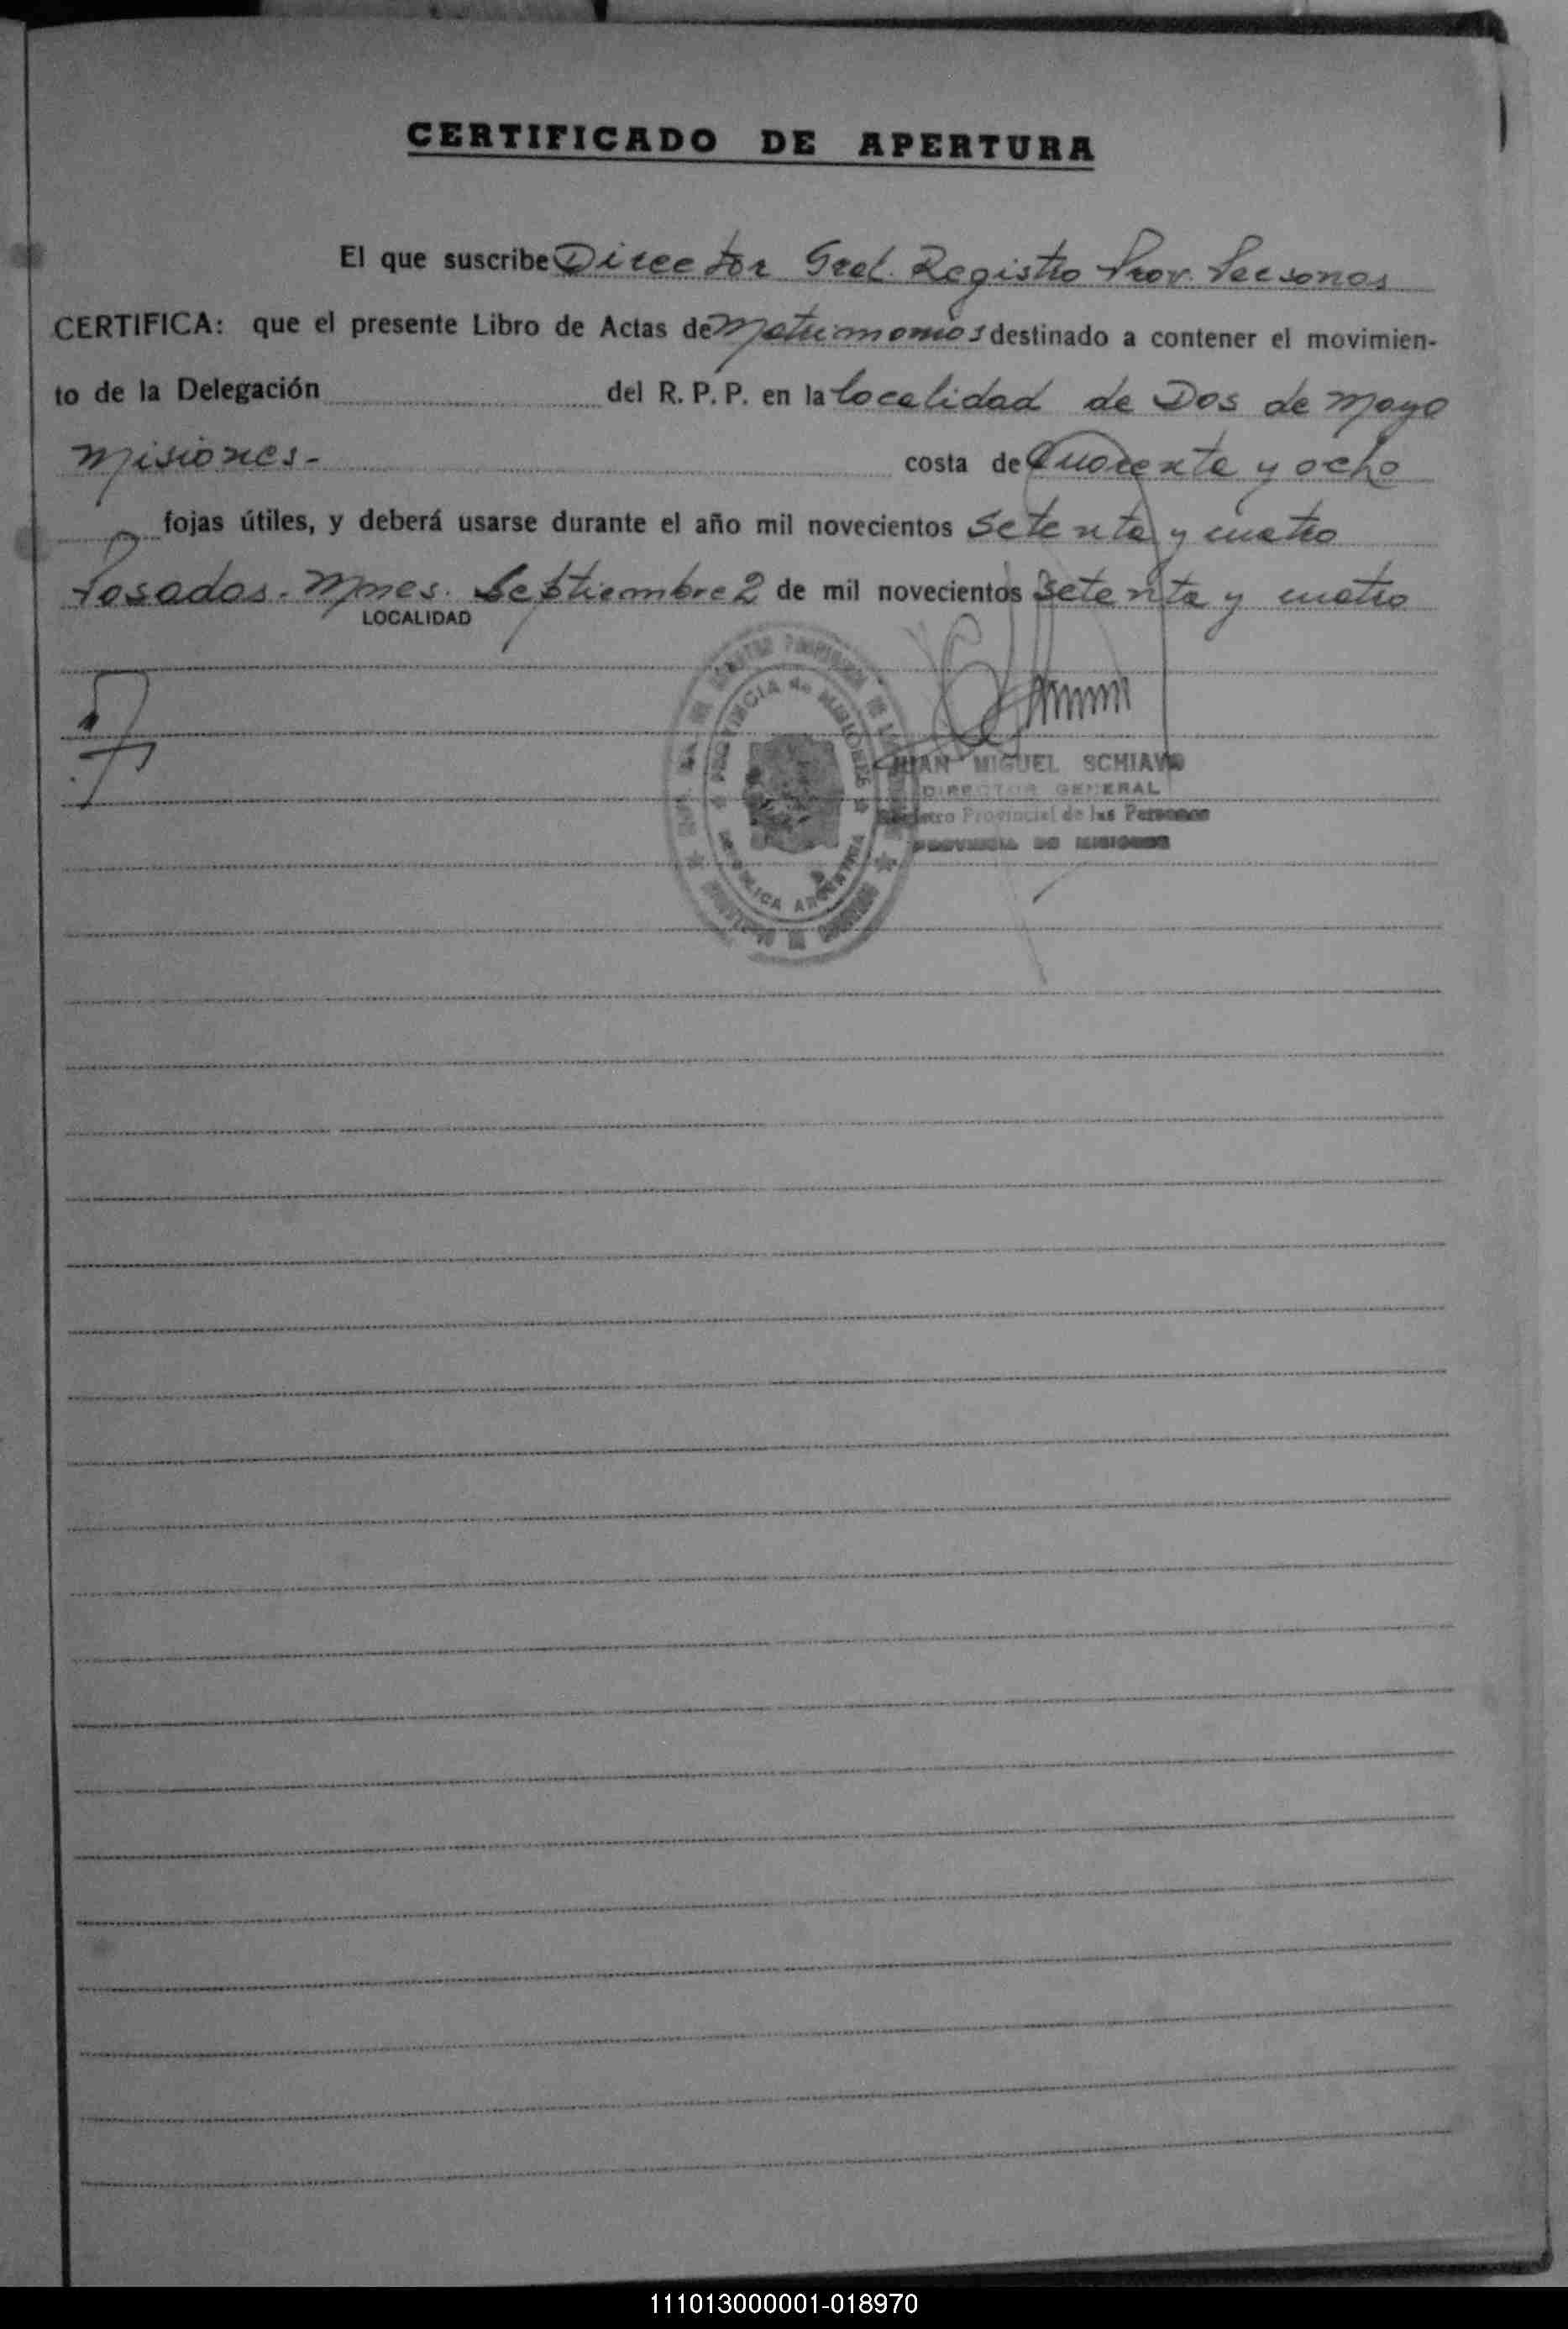 CERTIFICADO DE APERTURA
El que suscribe Director Gral. Registro Prov. Personas
CERTIFICA: que el presente Libro de Actas de Matrimonios destinado a contener el movimien-
to de la Delegación del R. P. P. en la localidad de Dos de Mayo
Misiones.- costa de Cuarenta y ocho
fojas útiles, y deberá usarse durante el año mil novecientos setenta y cuatro
Posadas. Mnes. Septiembre 2 de mil novecientos setenta y cuatro
LOCALIDAD
PROVINCIA de MISIONES
REPUBLICA ARGENTINA
JUAN MIGUEL SCHIAVO
DIRECTOR GENERAL
Registro Provincial de las Personas
PROVINCIA DE MISIONES
111013000001-018970